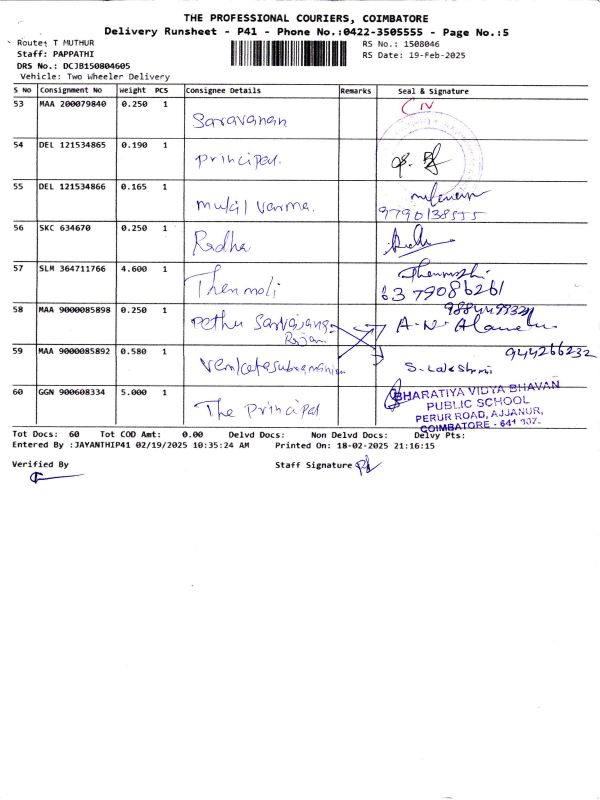 THE PROFESSIONAL COURIERS, COIMBATORE
Delivery Runsheet - P41 - Phone No.:0422-3505555 - Page No.:5
Route: T MUTHUR
RS No.: 1508046
Staff: PAPPATHI
RS Date: 19-Feb-2025
DRS No.: DCJB150804605
Vehicle: Two Wheeler Delivery
S No Consignment No Weight PCS Consignee Details Remarks Seal & Signature
53 MAA 200079840 0.250 1 Saravanan
54 DEL 121534865 0.190 1 principal.
55 DEL 121534866 0.165 1 mukil varma.
9790138555
56 SKC 634670 0.250 1 Radha
57 SLM 364711766 4.600 1 Thenmoli
63 79086261
58 MAA 9000085898 0.250 1
59 MAA 9000085892 0.580 1 Venkatasubramanian S. Lakshmi
944266232
60 GGN 900608334 5.000 1 The Principal
BHARATIYA VIDYA BHAVAN
PUBLIC SCHOOL
PERUR ROAD, AJJANUR,
COIMBATORE - 641
Tot Docs: 60 Tot COD Amt: 0.00 Delvd Docs: Non Delvd Docs: Delvy Pts:
Entered By :JAYANTHIP41 02/19/2025 10:35:24 AM Printed On: 18-02-2025 21:16:15
Verified By Staff Signature